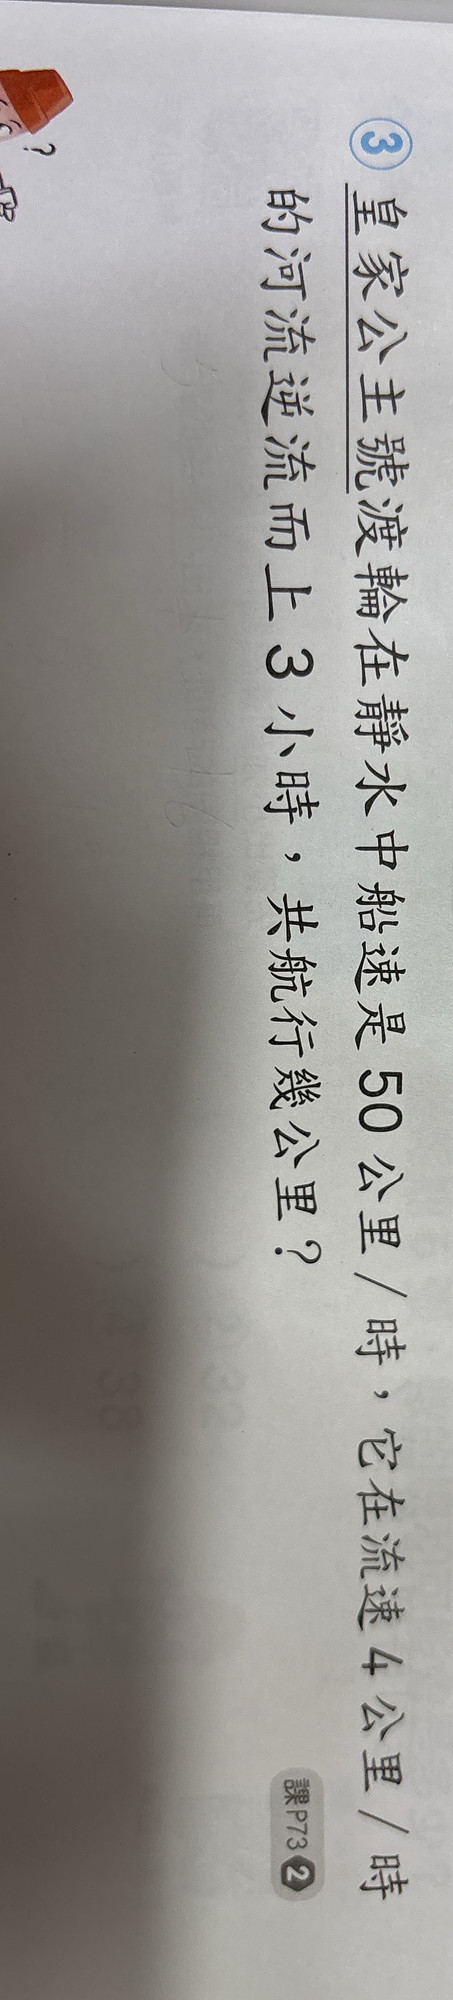 ③ 皇家公主號渡輪在靜水中船速是50公里/時，它在流速4公里/時
的河流逆流而上3小時，共航行幾公里？
課P73 2
?